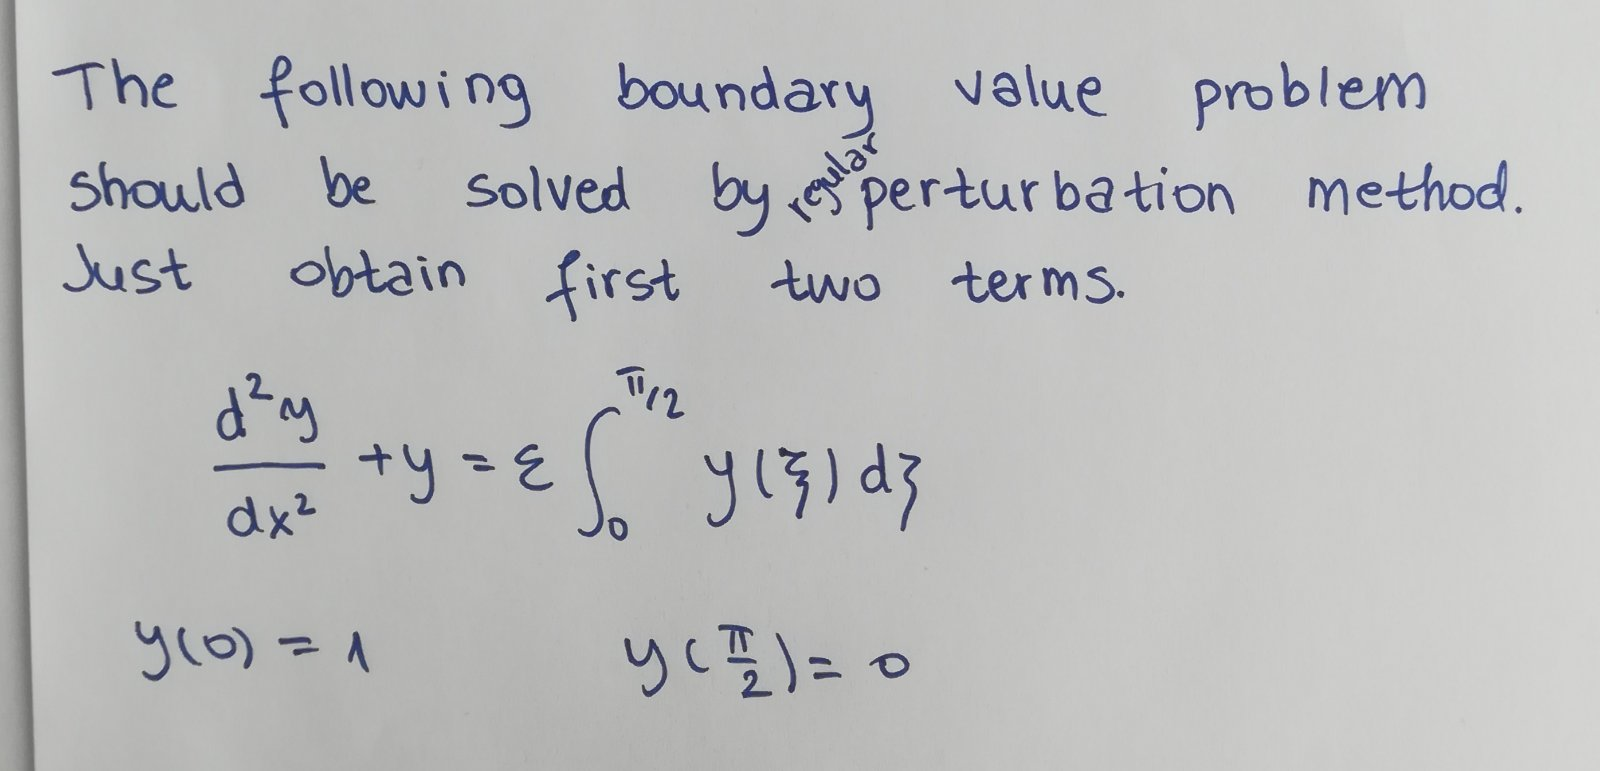 The following boundary value problem
should be solved by regular perturbation method.
Just obtain first two terms.
d²y/dx² + y = ε ∫₀^{π/2} y(ξ) dξ
y(0) = 1 y(π/2) = 0